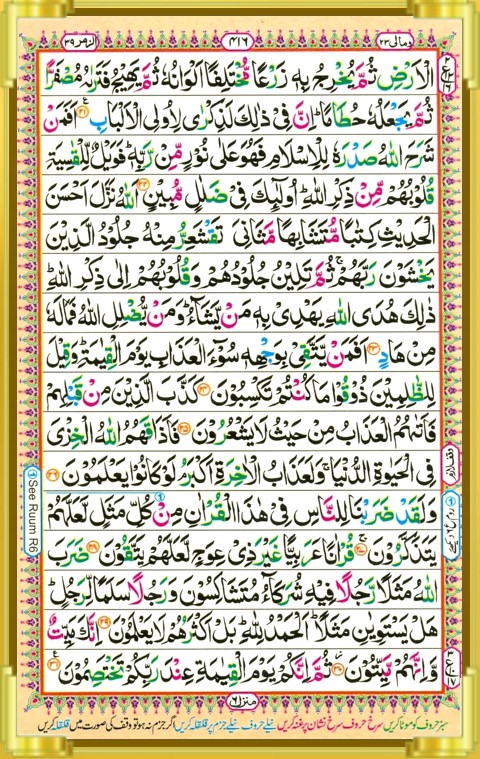 الزمر ٣٩ ٤١٦ ومالی ٢٣
الۡاَرۡضِ ثُمَّ یُخۡرِجُ بِہٖ زَرۡعًا مُّخۡتَلِفًا اَلۡوَانُہٗ ثُمَّ یَہِیۡجُ فَتَرٰىہُ مُصۡفَرًّا
ثُمَّ یَجۡعَلُہٗ حُطَامًا ؕ اِنَّ فِیۡ ذٰلِکَ لَذِکۡرٰی لِاُولِی الۡاَلۡبَابِ ﴿۲۱﴾ اَفَمَنۡ
شَرَحَ اللّٰہُ صَدۡرَہٗ لِلۡاِسۡلَامِ فَہُوَ عَلٰی نُوۡرٍ مِّنۡ رَّبِّہٖ ؕ فَوَیۡلٌ لِّلۡقٰسِیَۃِ
قُلُوۡبُہُمۡ مِّنۡ ذِکۡرِ اللّٰہِ ؕ اُولٰٓئِکَ فِیۡ ضَلٰلٍ مُّبِیۡنٍ ﴿۲۲﴾ اَللّٰہُ نَزَّلَ اَحۡسَنَ
الۡحَدِیۡثِ کِتٰبًا مُّتَشَابِہًا مَّثَانِیَ ٭ۖ تَقۡشَعِرُّ مِنۡہُ جُلُوۡدُ الَّذِیۡنَ
یَخۡشَوۡنَ رَبَّہُمۡ ۚ ثُمَّ تَلِیۡنُ جُلُوۡدُہُمۡ وَ قُلُوۡبُہُمۡ اِلٰی ذِکۡرِ اللّٰہِ ؕ
ذٰلِکَ ہُدَی اللّٰہِ یَہۡدِیۡ بِہٖ مَنۡ یَّشَآءُ ؕ وَ مَنۡ یُّضۡلِلِ اللّٰہُ فَمَا لَہٗ
مِنۡ ہَادٍ ﴿۲۳﴾ اَفَمَنۡ یَّتَّقِیۡ بِوَجۡہِہٖ سُوۡٓءَ الۡعَذَابِ یَوۡمَ الۡقِیٰمَۃِ ؕ وَ قِیۡلَ
لِلظّٰلِمِیۡنَ ذُوۡقُوۡا مَا کُنۡتُمۡ تَکۡسِبُوۡنَ ﴿۲۴﴾ کَذَّبَ الَّذِیۡنَ مِنۡ قَبۡلِہِمۡ
فَاَتٰىہُمُ الۡعَذَابُ مِنۡ حَیۡثُ لَا یَشۡعُرُوۡنَ ﴿۲۵﴾ فَاَذَاقَہُمُ اللّٰہُ الۡخِزۡیَ
فِی الۡحَیٰوۃِ الدُّنۡیَا ۚ وَ لَعَذَابُ الۡاٰخِرَۃِ اَکۡبَرُ ۘ لَوۡ کَانُوۡا یَعۡلَمُوۡنَ ﴿۲۶﴾
وَ لَقَدۡ ضَرَبۡنَا لِلنَّاسِ فِیۡ ہٰذَا الۡقُرۡاٰنِ مِنۡ کُلِّ مَثَلٍ لَّعَلَّہُمۡ
یَتَذَکَّرُوۡنَ ﴿۲۷﴾ قُرۡاٰنًا عَرَبِیًّا غَیۡرَ ذِیۡ عِوَجٍ لَّعَلَّہُمۡ یَتَّقُوۡنَ ﴿۲۸﴾ ضَرَبَ
اللّٰہُ مَثَلًا رَّجُلًا فِیۡہِ شُرَکَآءُ مُتَشٰکِسُوۡنَ وَ رَجُلًا سَلَمًا لِّرَجُلٍ ؕ
ہَلۡ یَسۡتَوِیٰنِ مَثَلًا ؕ اَلۡحَمۡدُ لِلّٰہِ ۚ بَلۡ اَکۡثَرُہُمۡ لَا یَعۡلَمُوۡنَ ﴿۲۹﴾ اِنَّکَ مَیِّتٌ
وَّ اِنَّہُمۡ مَّیِّتُوۡنَ ﴿۫۳۰﴾ ثُمَّ اِنَّکُمۡ یَوۡمَ الۡقِیٰمَۃِ عِنۡدَ رَبِّکُمۡ تَخۡتَصِمُوۡنَ ﴿۳۱﴾
See Ruum R6
منزل ٦
سبز حروف کو موٹا کریں سرخ حروف سرخ نشان پر غنہ کریں نیلے حروف نیلے جزم پر قلقلہ کریں اگر جزم نہ ہو تو وقف کی صورت میں قلقلہ کریں